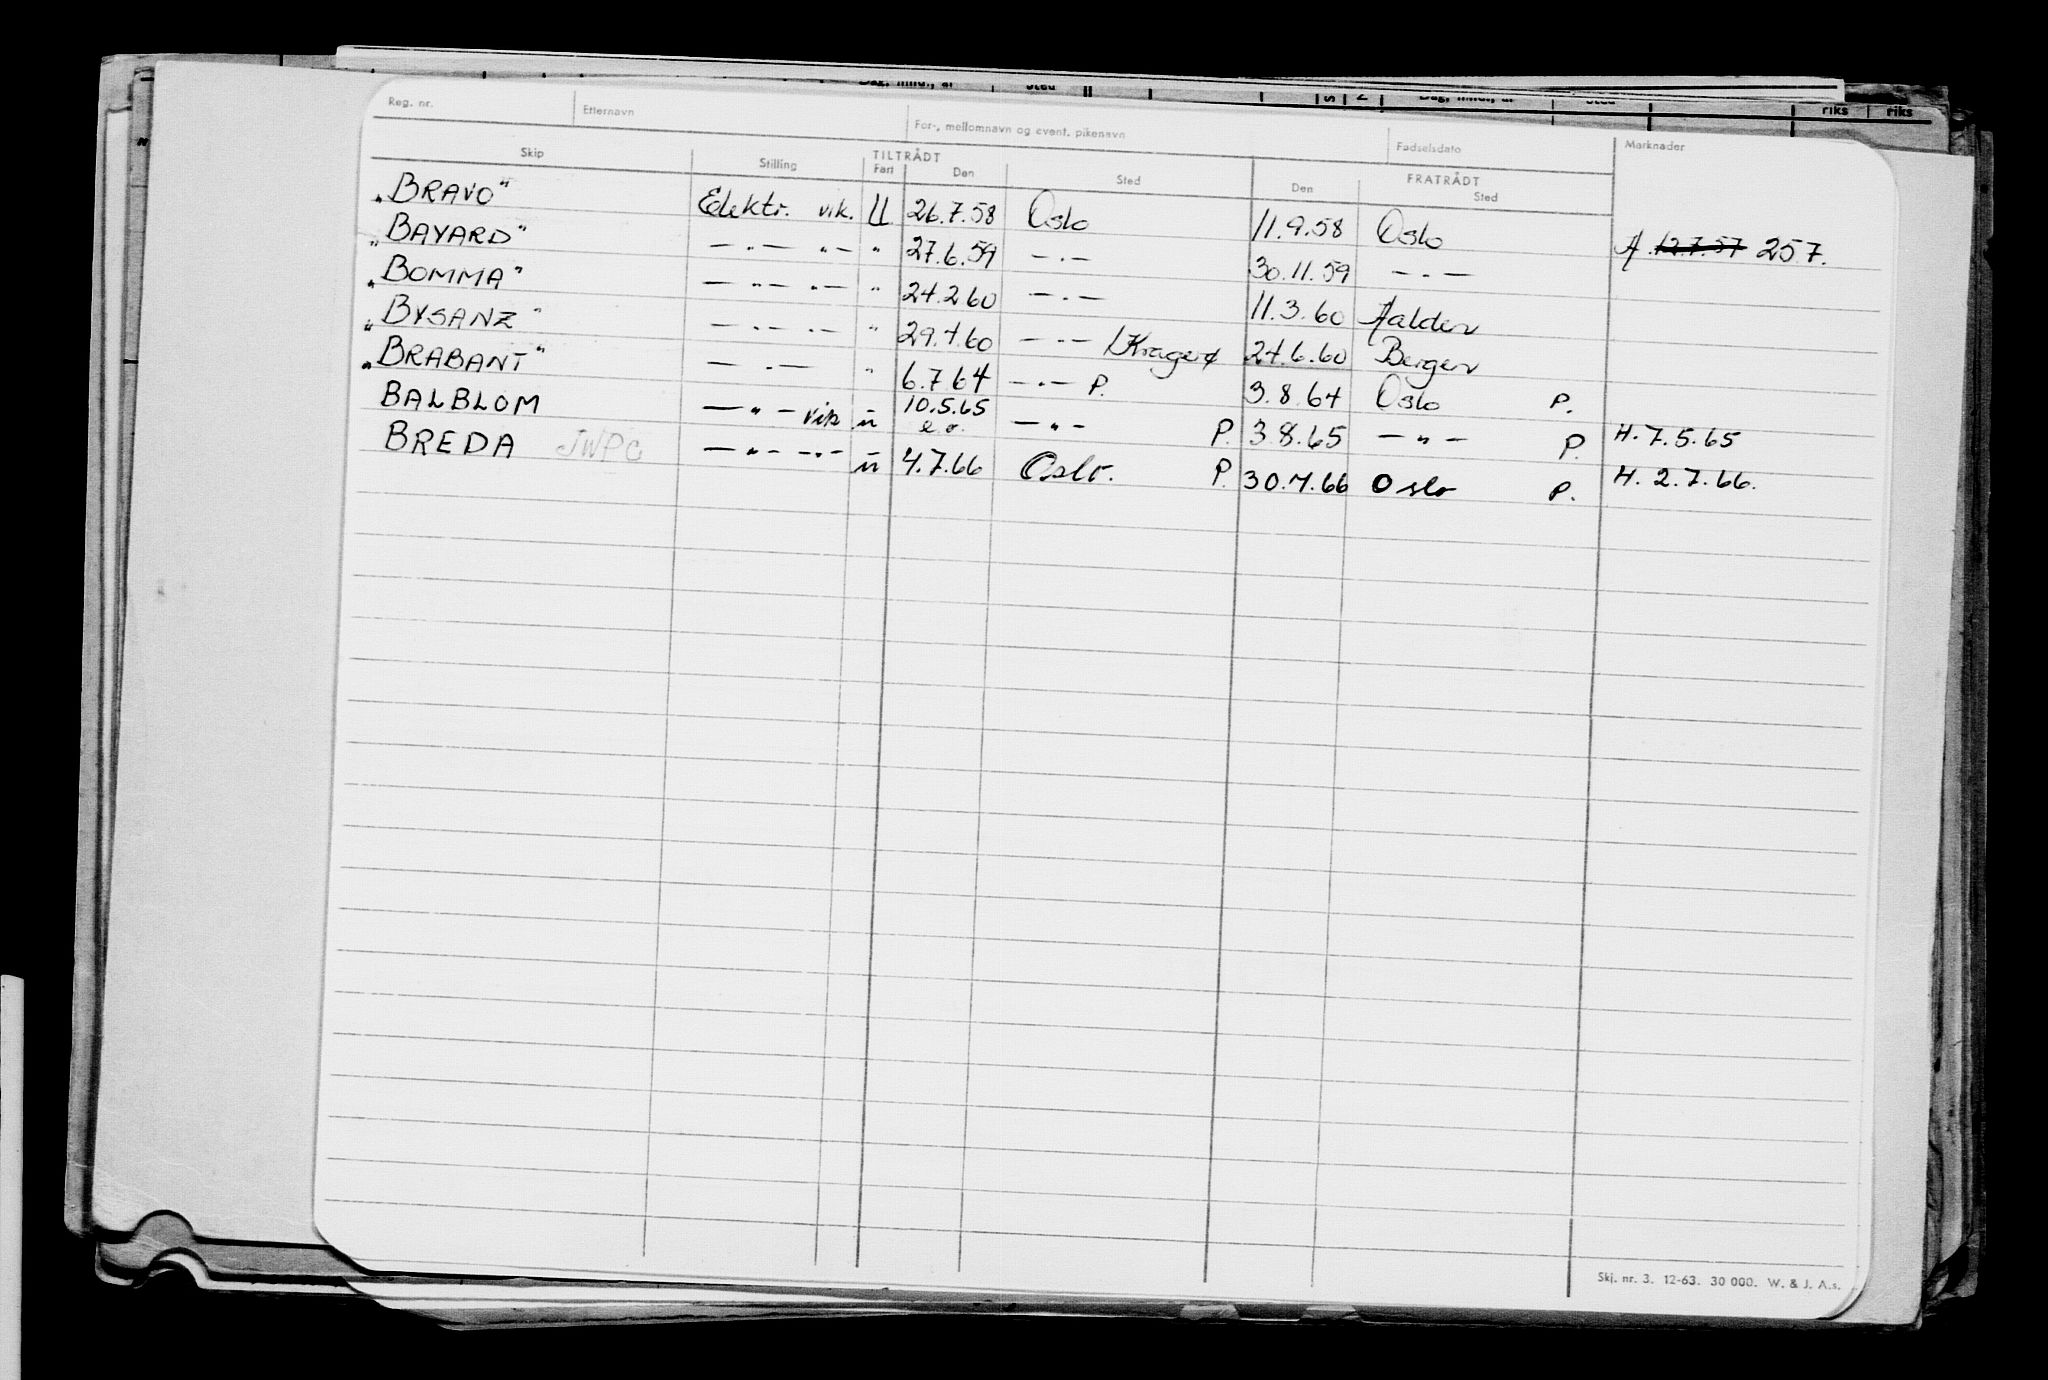 Reg. nr. Etternavn For-, mellomnavn og event. pikenavn Fødselsdato Marknader
Skip Stilling TILTRÅDT Fart Den Sted FRATRÅDT Den Sted
„BRAVO" Elektr. vik. U 26.7.58 Oslo 11.9.58 Oslo A. 12.7.57 25.7.
„BAYARD" — . — " — " 27.6.59 — . — 30.11.59 — . —
„BOMMA" — " — " — " 24.2.60 — . — 11.3.60 Halden
„BYSANZ" — . — . — " 29.4.60 — " — /Kragerø 24.6.60 Bergen
„BRABANT" — . — " 6.7.64 — . — P. 3.8.64 Oslo P.
BALBLOM — " — vik u 10.5.65 e.o. — " — P. 3.8.65 — " — P. H. 7.5.65
BREDA JWPC — " — " — u 4.7.66 Oslo. P. 30.7.66 Oslo P. H. 2.7.66.
Skj. nr. 3. 12-63. 30 000. W. & J. A.s.